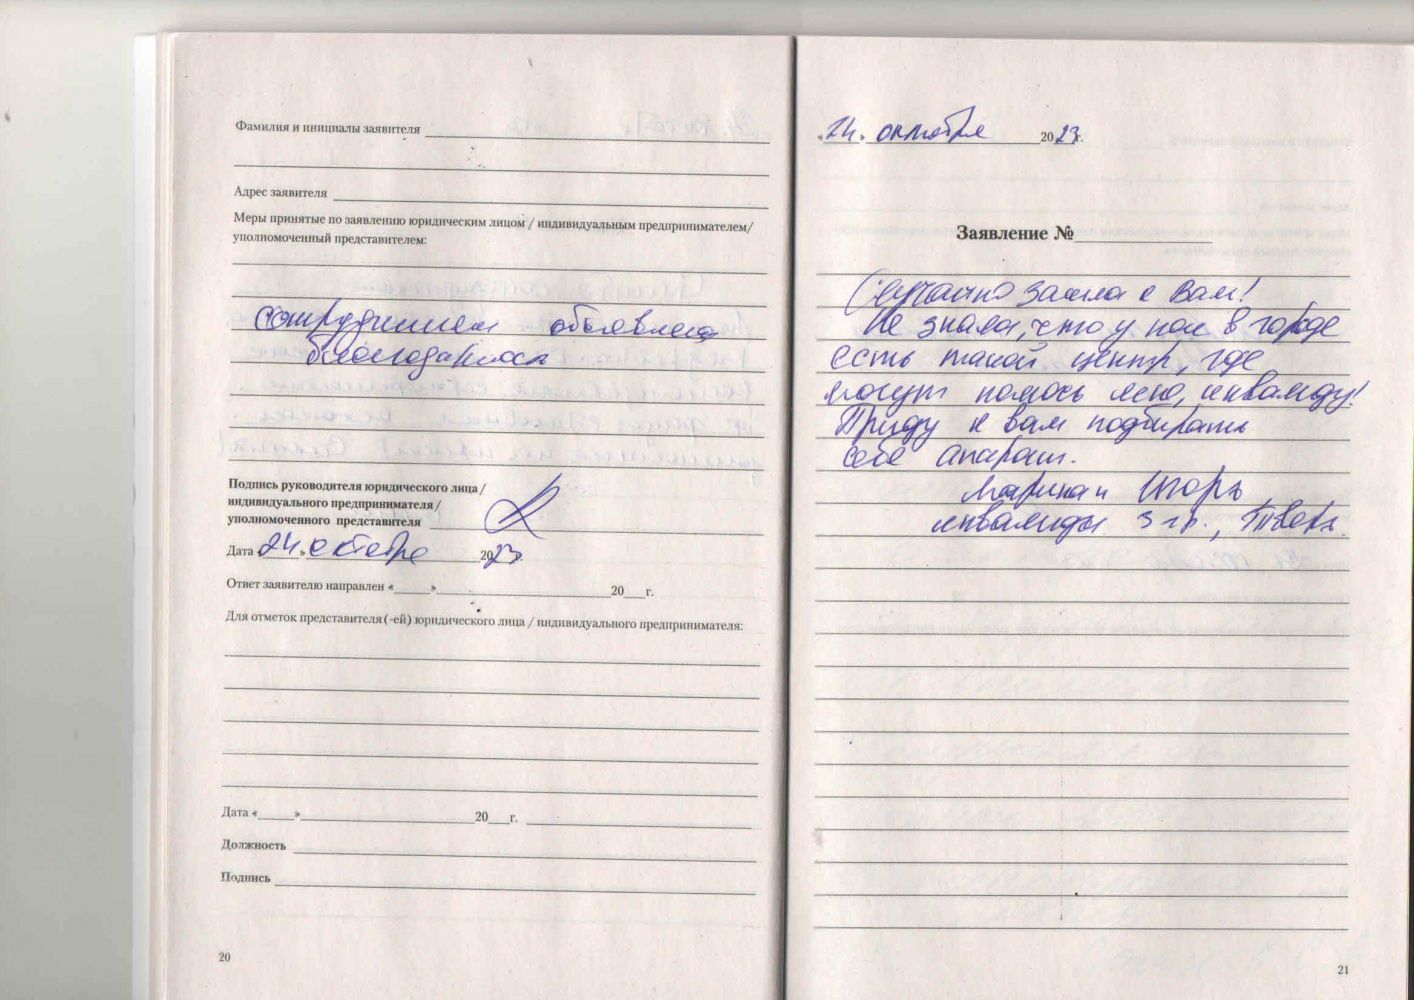 Фамилия и инициалы заявителя
Адрес заявителя
Меры принятые по заявлению юридическим лицом / индивидуальным предпринимателем/
уполномоченный представителем:
сотрудникам объявлена
благодарность
Подпись руководителя юридического лица /
индивидуального предпринимателя/
уполномоченного представителя
Дата «24» октября 2023
Ответ заявителю направлен «____»____ 20__г.
Для отметок представителя (-ей) юридического лица / индивидуального предпринимателя:
Дата «____»____ 20__г.
Должность
Подпись
20
«24» октября 2023г.
Заявление №
Случайно зашла к Вам!
Не знала, что у нас в городе
есть такой центр, где
могут помочь мне, инвалиду!
Приду к вам подбирать
себе апарат.
Марина и Игорь,
инвалиды 3 гр., Тверь.
21